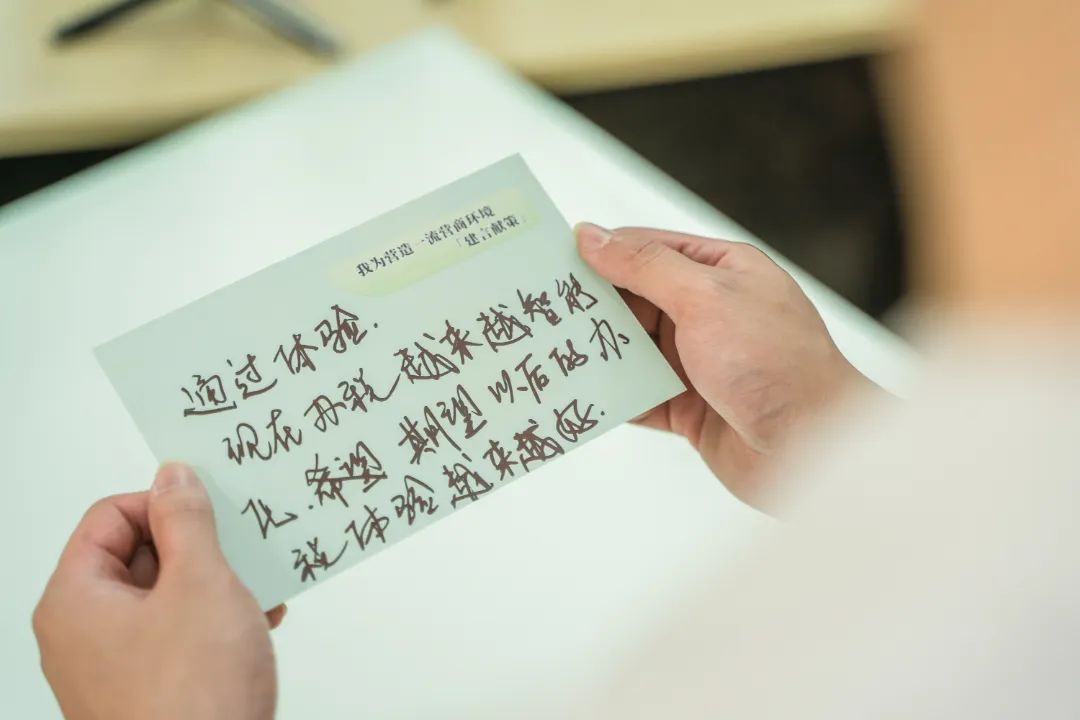 我为营造一流营商环境
「建言献策」
通过体验.
现在办税越来越智能
化.希望期望以后的办
税体验越来越好.